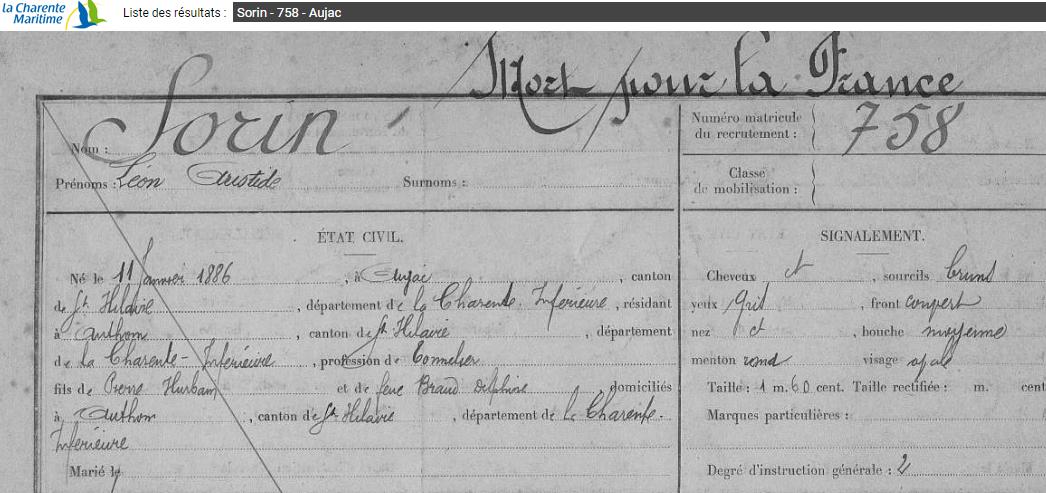 la Charente
Maritime
Liste des résultats : Sorin - 758 - Aujac
Mort pour la France
Nom : Sorin
Numéro matricule
du recrutement : 758
Prénoms : Léon Aristide Surnoms :
Classe
de mobilisation :
ÉTAT CIVIL.
SIGNALEMENT.
Né le 11 Janvier 1886, à Aujac, canton
Cheveux et, sourcils bruns
de St Hilaire, département de la Charente-Inférieure, résidant
yeux gris, front couvert
à Authon, canton de St Hilaire, département
nez et, bouche moyenne
de la Charente-Inférieure, profession de Tonnelier
menton rond visage ovale
fils de Pierre Hurbain et de feue Braud Delphine, domiciliés
Taille : 1 m. 60 cent. Taille rectifiée : m. cent
à Authon, canton de St Hilaire, département de la Charente-
Marques particulières :
Inférieure
Marié
Degré d'instruction générale : 2